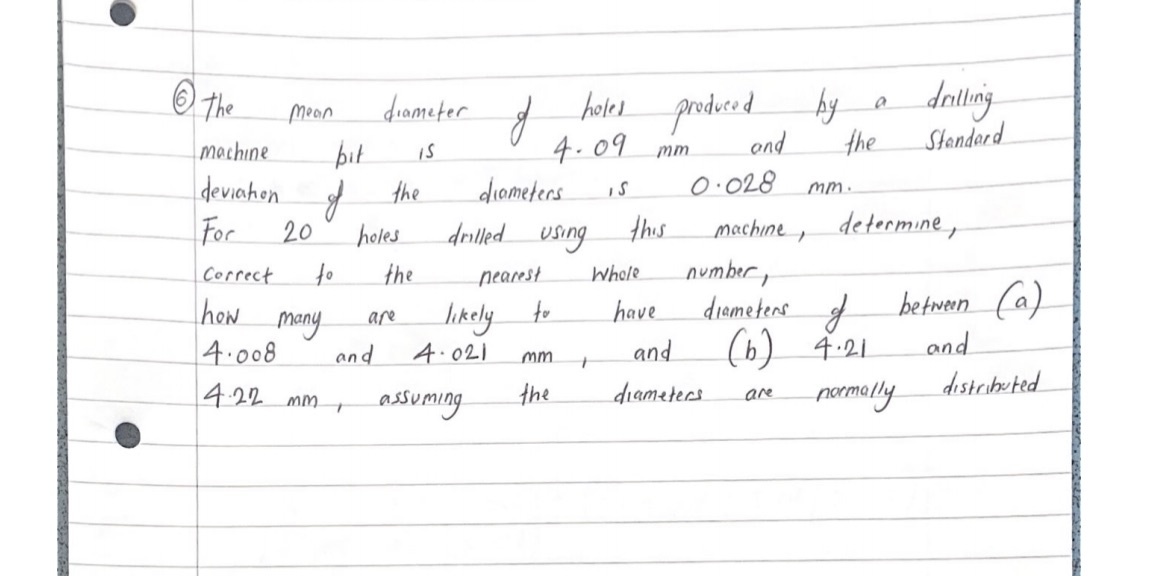 ⑥ The mean diameter of holes produced by a drilling
machine bit is 4.09 mm and the Standard
deviation of the diameters is 0.028 mm.
For 20 holes drilled using this machine, determine,
correct to the nearest whole number,
how many are likely to have diameters of between (a)
4.008 and 4.021 mm, and (b) 4.21 and
4.22 mm, assuming the diameters are normally distributed